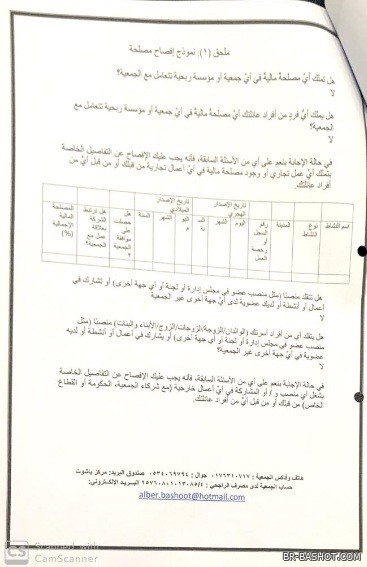 ملحق (١): نموذج إفصاح مصلحة
هل تملك أيَّ مصلحة ماليةٍ في أيّ جمعية أو مؤسسة ربحية تتعامل مع الجمعية؟
لا
هل يملك أيُّ فردٍ من أفراد عائلتك أيَّ مصلحة مالية في أيّ جمعية أو مؤسسة ربحية تتعامل مع
الجمعية؟
لا
في حالة الإجابة بنعم على أي من الأسئلة السابقة، فأنه يجب عليك الإفصاح عن التفاصيل الخاصة
بتملك أيّ عمل تجاري أو وجود مصلحة مالية في أيّ أعمال تجارية من قبلك أو من قبل أيٍّ من
أفراد عائلتك.
اسم النشاط
نوع النشاط
المدينة
رقم السجل أو رخصة العمل
تاريخ الإصدار الهجري
اليوم
الشهر
تاريخ الإصدار الميلادي
اليوم
الشهر
السنة
هل حصلت على موافقة الجمعية؟
هل ترتبط الشركة بعلاقة عمل مع الجمعية؟
المصلحة المالية الإجمالية (%)
هل تتقلد منصبًا (مثل منصب عضو في مجلس إدارة أو لجنة أو أي جهة أخرى) أو تشارك في
أعمال أو أنشطة أو لديك عضوية لدى أيّ جهة أخرى غير الجمعية
لا
هل يتقلد أي من أفراد أسرتك (الوالدان/الزوجة/الزوجات/الزوج/الأبناء والبنات) منصبًا (مثل
منصب عضو في مجلس إدارة أو لجنة أو أي جهة أخرى) أو يشارك في أعمال أو أنشطة أو لديه
عضوية في أيّ جهة أخرى غير الجمعية؟
لا
في حالة الإجابة بنعم على أي من الأسئلة السابقة، فأنه يجب عليك الإفصاح عن التفاصيل الخاصة
بشغل أي منصب و / أو المشاركة في أيّ أعمال خارجية (مع شركاء الجمعية، الحكومة أو القطاع
الخاص) من قبلك أو من قبل أيٍّ من أفراد عائلتك.
هاتف وفاكس الجمعية : ٠١٧٦٣١٠٧١٧ جوال : ٠٥٣٤٠٦٩٧٩٤ صندوق البريد: مركز باشوت
حساب الجمعية لدى مصرف الراجحي : ٢٥٧٦٠٨٠١٠١٣٠٨٥/٤ البريد الإلكتروني:
alber.bashoot@hotmail.com
CS Scanned with
CamScanner
BR-BASHOT.COM